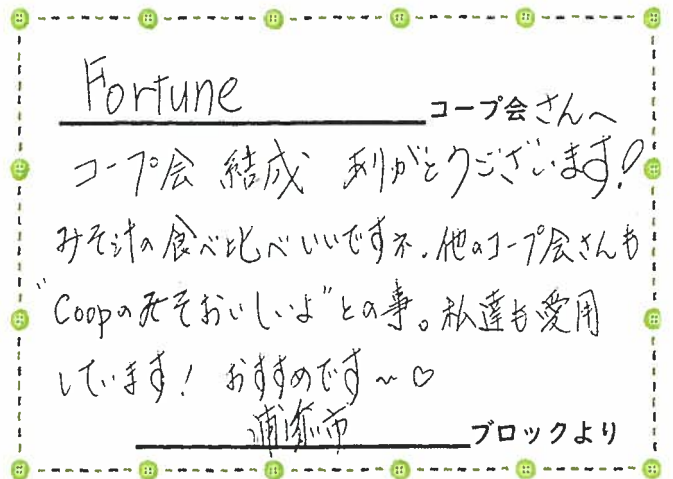 Fortune コープ会さんへ
コープ会 結成 ありがとうございます!
みそ汁の食べ比べいいですネ.他のコープ会さんも
"Coopのみそおいしいよ"との事。私達も愛用
しています! おすすめです~♡
浦添市 ブロックより